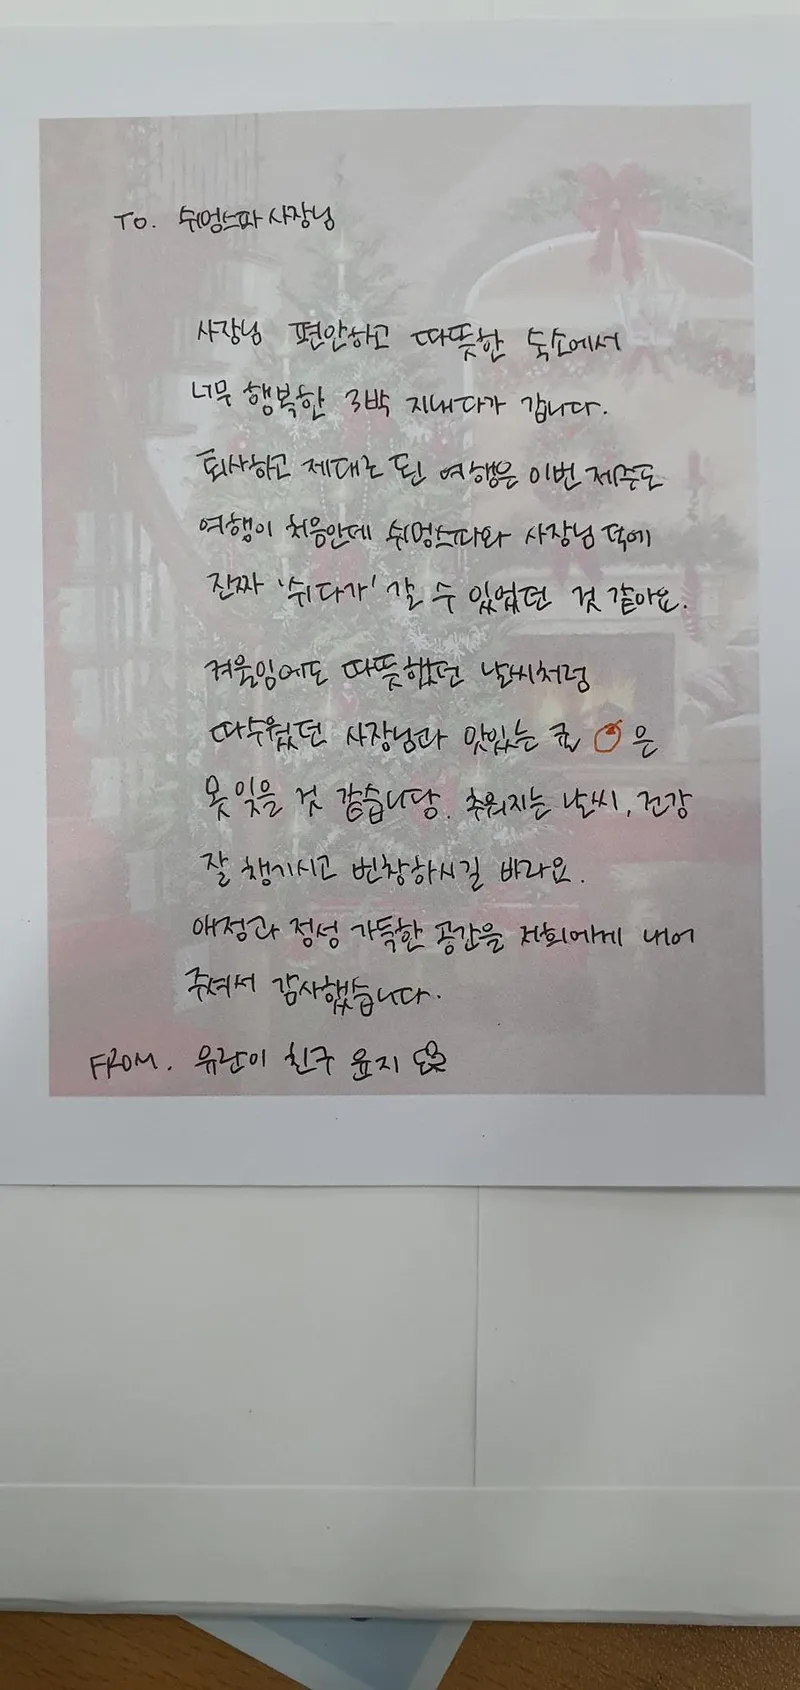 TO. 쉬멍스파 사장님
사장님 편안하고 따뜻한 숙소에서
너무 행복한 3박 지내다가 갑니다.
퇴사하고 제대로 된 여행은 이번 제주도
여행이 처음인데 쉬멍스파와 사장님 덕에
진짜 '쉬다가' 갈 수 있었던 것 같아요.
겨울임에도 따뜻했던 날씨처럼
따수웠던 사장님과 맛있는 귤 은
못 잊을 것 같습니당. 추워지는 날씨, 건강
잘 챙기시고 번창하시길 바라요.
애정과 정성 가득한 공간을 저희에게 내어
주셔서 감사했습니다.
FROM. 유란이 친구 윤지